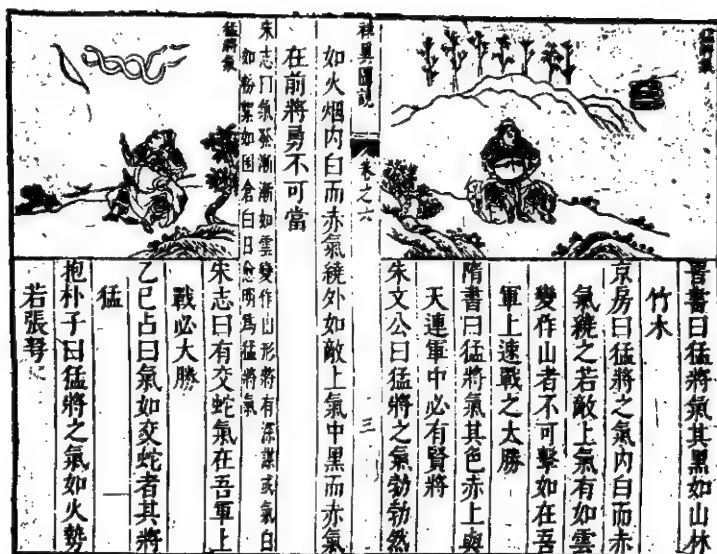 猛將氣
晋書曰猛將氣其黑如山林
竹木
京房曰猛將之氣内白而赤
氣繞之若敵上氣有如雲
變作山者不可擊如在吾
軍上速戰之大勝
隋書曰猛將氣其色赤上與
天連軍中必有賢將
朱文公曰猛將之氣勃勃然
祥異圖說
卷之六
三
如火烟内白而赤氣繞外如敵上氣中黑而赤氣
在前將勇不可當
宋志曰氣發漸漸如雲變作山形將有深謀或氣白
如粉絮如囷倉白日愈明爲猛將氣
猛將氣
宋志曰有交蛇氣在吾軍上
戰必大勝
乙巳占曰氣如交蛇者其將
猛
抱朴子曰猛將之氣如火勢
若張弩